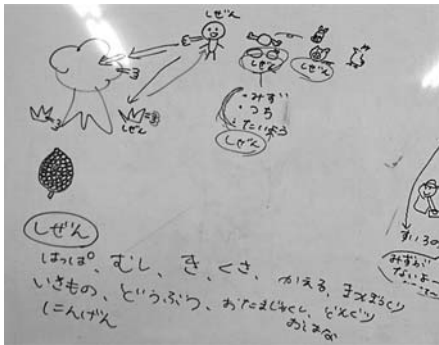 しぜん
しぜん
しぜん
しぜん
・みず
・つち
・たいよう
しぜん
しぜん
はっぱ、むし、き、くさ、かえる、まつぼっくり
いきもの、どうぶつ、おたまじゃくし、どんぐり
にんげん
おはな
みずが
ないよー